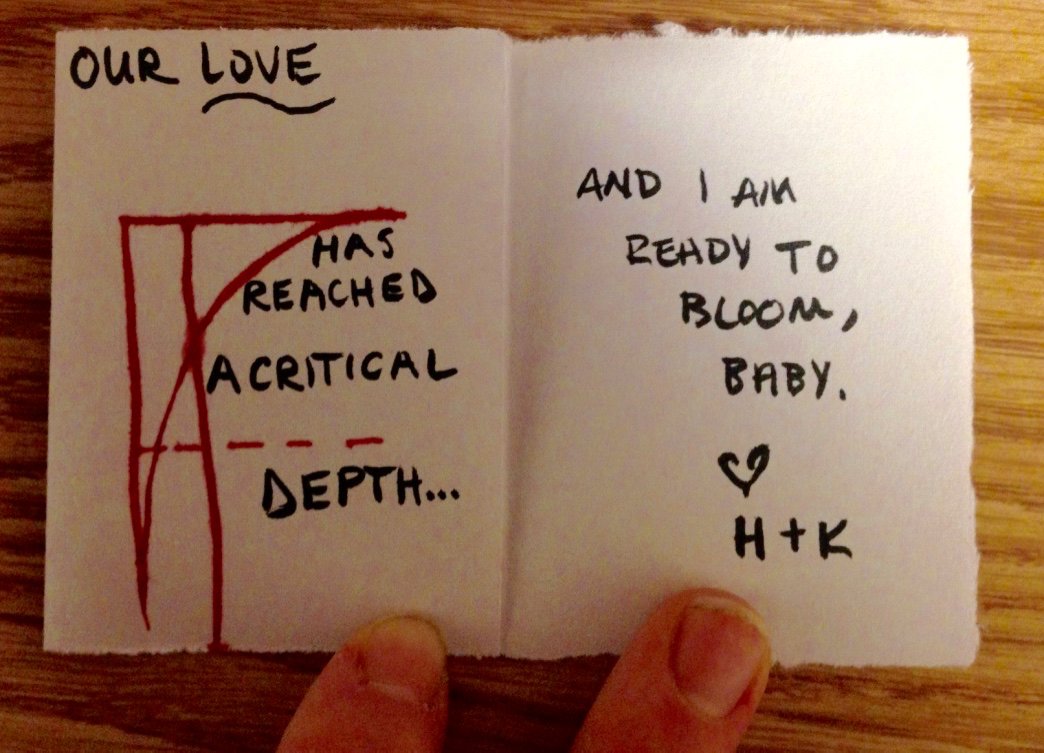 OUR LOVE
HAS
REACHED
A CRITICAL
DEPTH...
AND I AM
READY TO
BLOOM,
BABY.
H + K